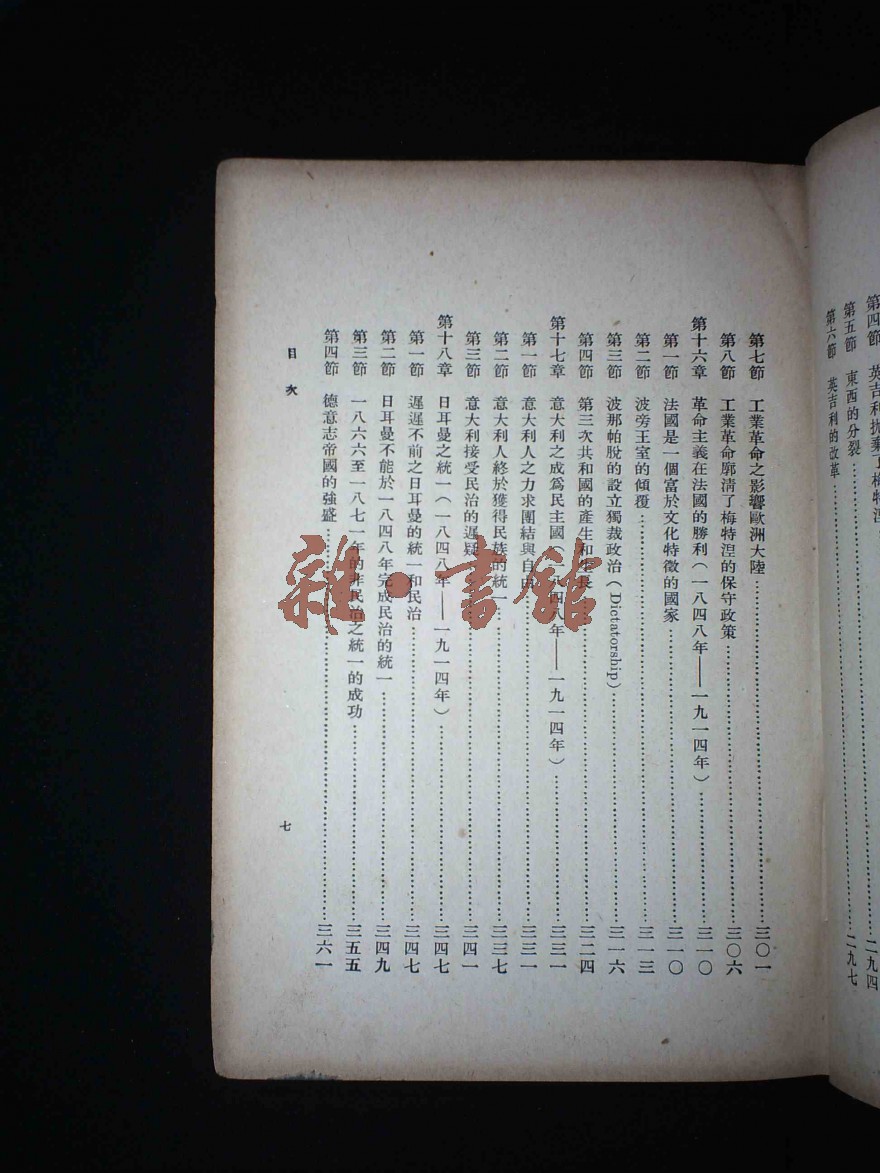 第四節 英吉利拋棄了梅特涅
二九四
第五節 東西的分裂……二九七
第六節 英吉利的改革……
第七節 工業革命之影響歐洲大陸……三〇一
第八節 工業革命廓清了梅特涅的保守政策……三〇六
第十六章 革命主義在法國的勝利(一八四八年——一九一四年)……三一〇
第一節 法國是一個富於文化特徵的國家……三一〇
第二節 波旁王室的傾覆……三一三
第三節 波那帕脫的設立獨裁政治(Dictatorship)……三一六
第四節 第三次共和國的產生和生長……三二四
第十七章 意大利之成爲民主國(一八四八年——一九一四年)……三三一
第一節 意大利人之力求團結與自由……三三一
第二節 意大利人終於獲得民族的統一……三三七
第三節 意大利接受民治的遲疑……三四一
第十八章 日耳曼之統一(一八四八年——一九一四年)……三四七
第一節 遲遲不前之日耳曼的統一和民治……三四七
第二節 日耳曼不能於一八四八年完成民治的統一……三四九
第三節 一八六六至一八七一年的非民治之統一的成功……三五五
第四節 德意志帝國的強盛……三六一
目次
七
雜·書館